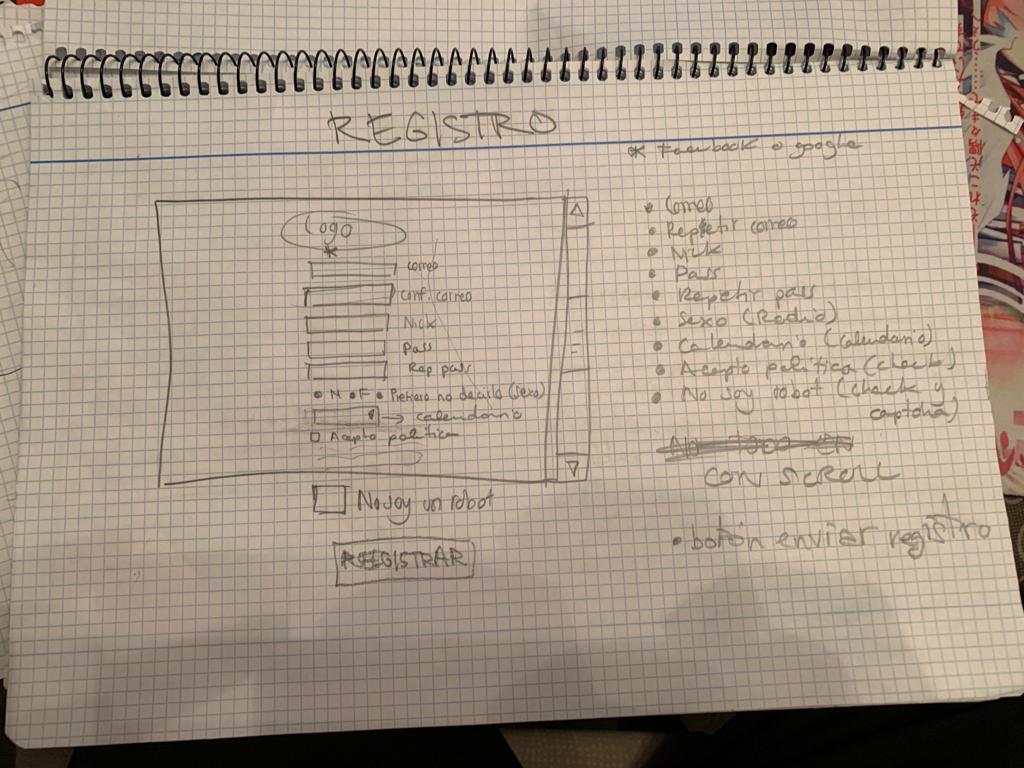 REGISTRO
* Facebook o google
Logo
*
correo
conf. correo
Nick
Pass
Rep pass
M F Prefiero no decirlo (sexo)
→ calendario
Acepto política
No soy un robot
REGISTRAR
• Correo
• Repetir correo
• Nick
• Pass
• Repetir pass
• Sexo (Radio)
• Calendario (calendario)
• Acepto política (check)
• No soy robot (check y
captcha)
CON SCROLL
• botón enviar registro